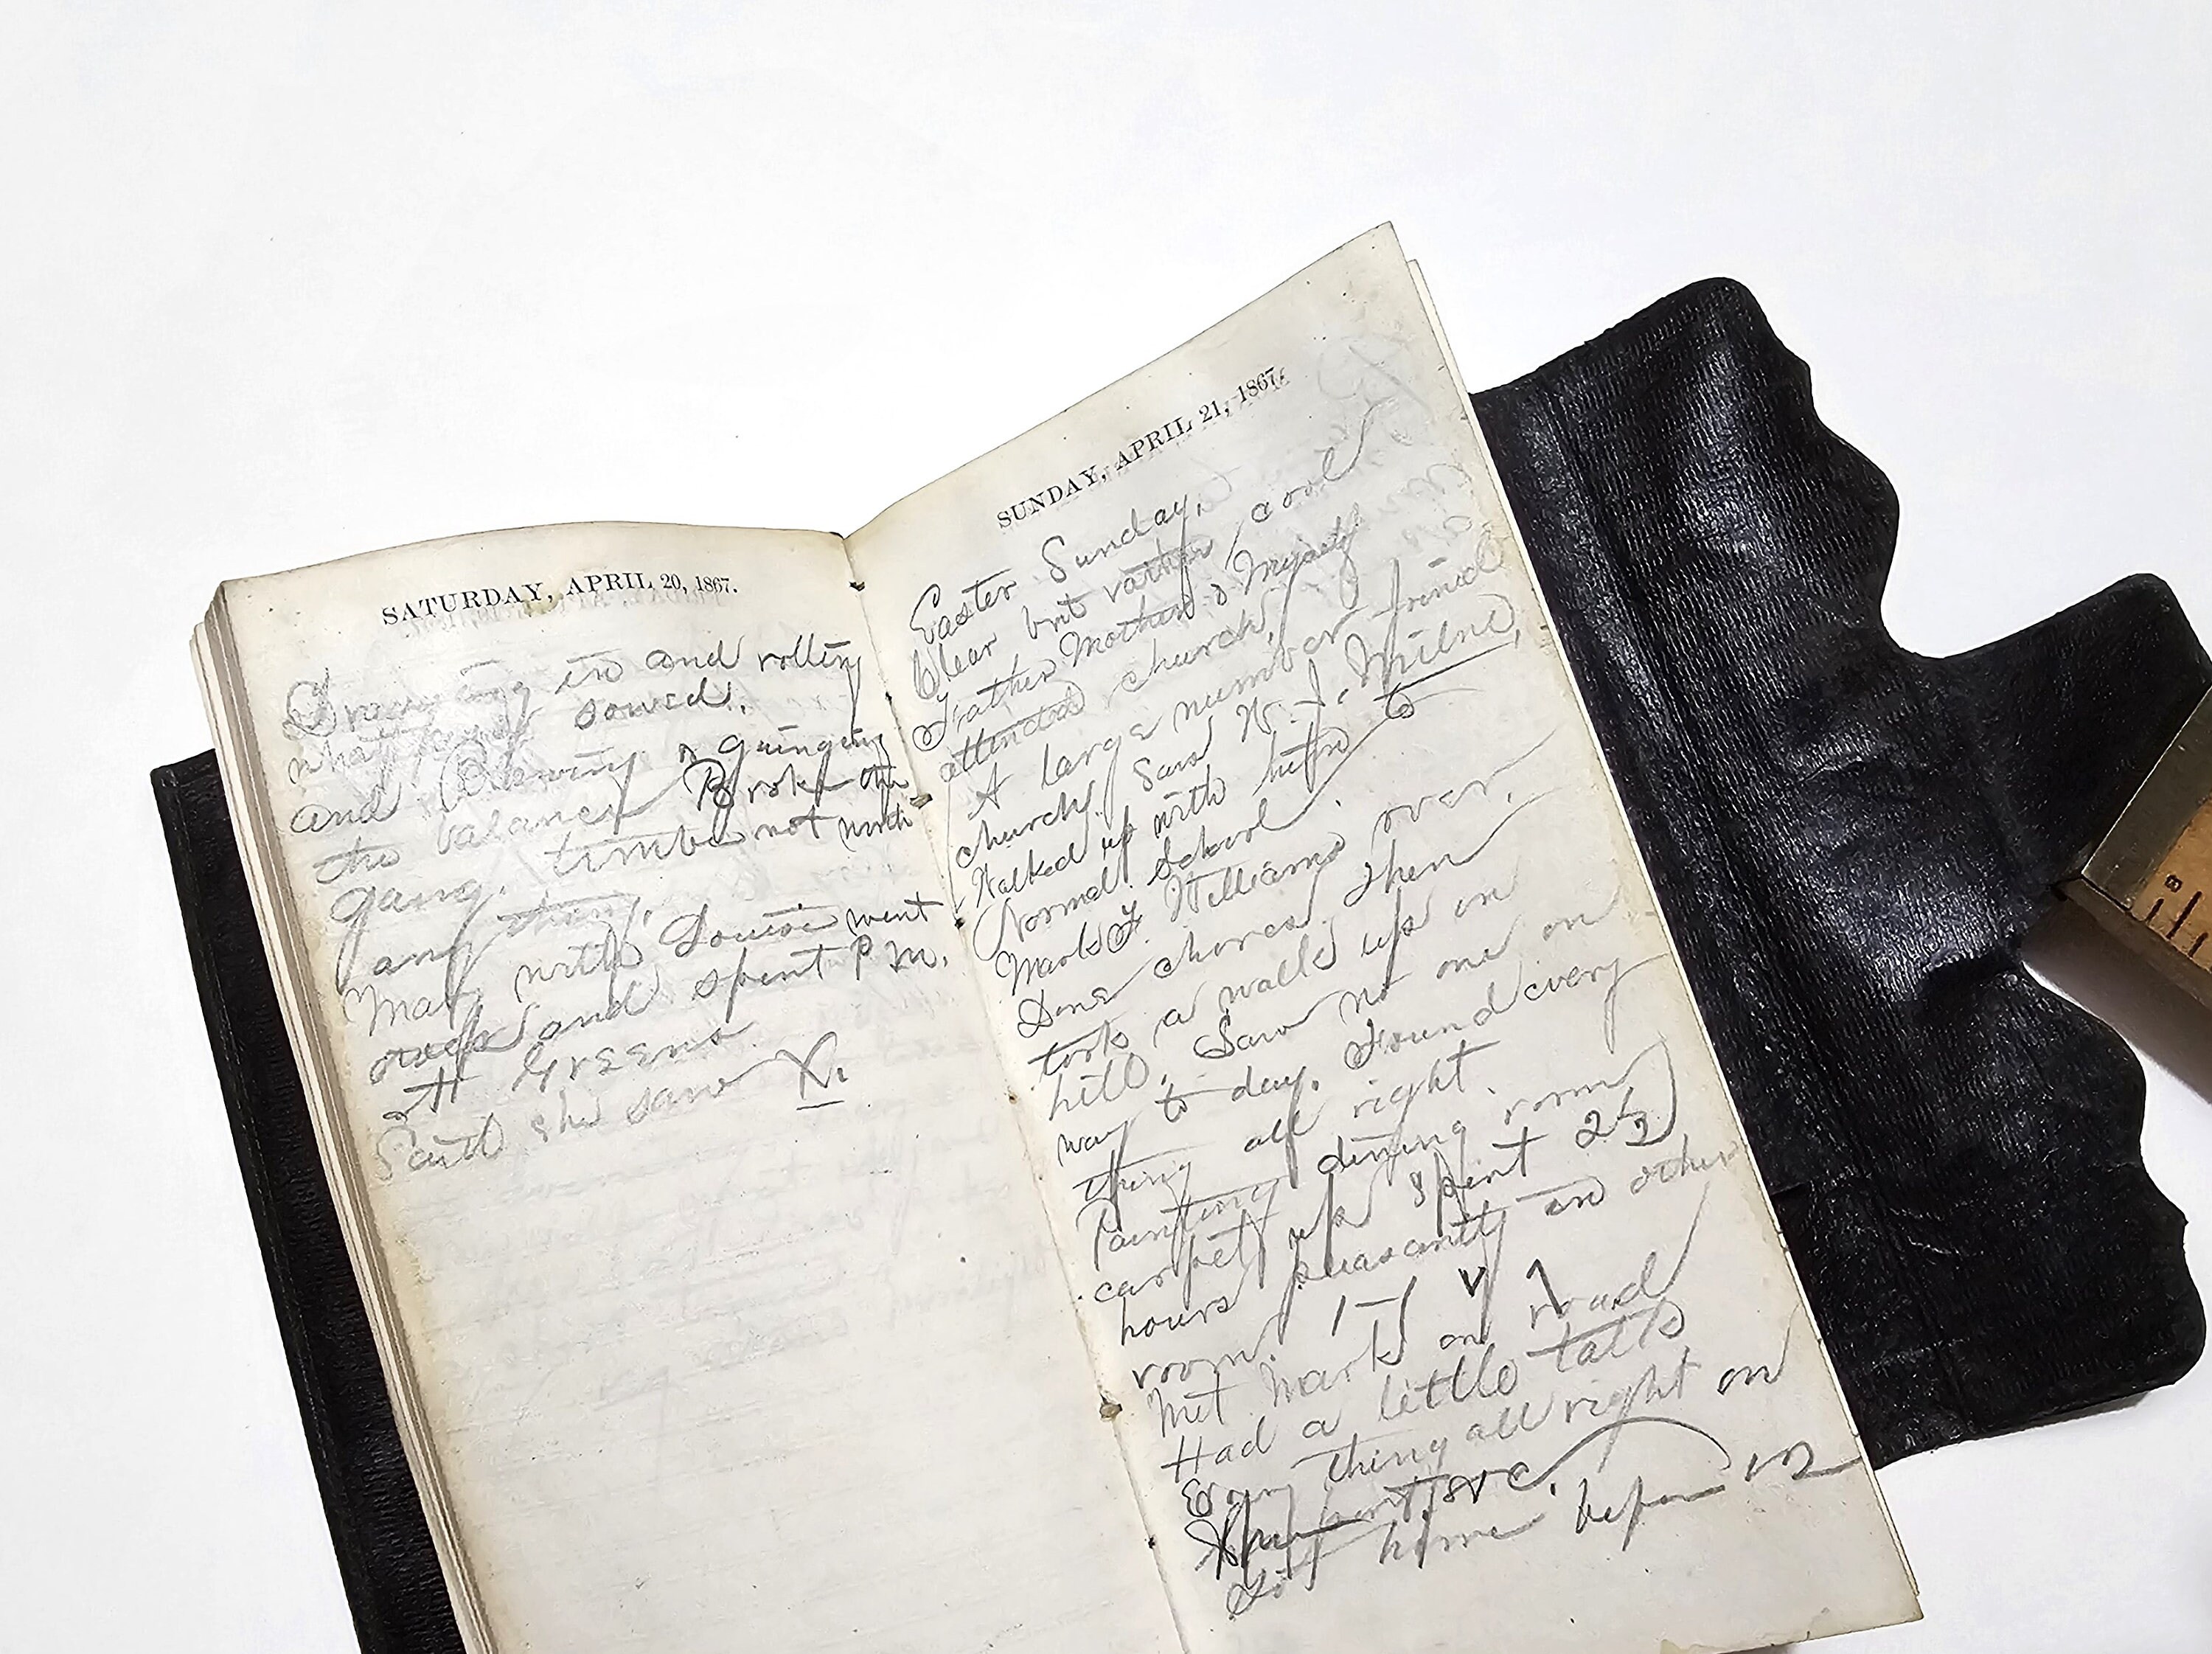 SATURDAY, APRIL 20, 1867.
Dragging in and rolling
what sowed.
and Plowing & 
the balance Broke the
gang. timber not worth
any thing.
May with Louise went
over and spent P.M.
at Greens.
Said she saw X.
SUNDAY, APRIL 21, 1867.
Easter Sunday,
Clear but rather cool
Father Mother & Myself
attended church,
A large number of friend
church. Saw W. J. Milne,
Walked up with him to
Normal School
Mark F. Williams over.
Done chores then
took a walk up on
hill, Saw no one on
way to day. Found every
thing all right.
Painting dining room
carpet up spent 2½
hours pleasantly in other
room.
Met Mark on road
Had a little talk
Every thing all right on
&c.
Got home before 12
8